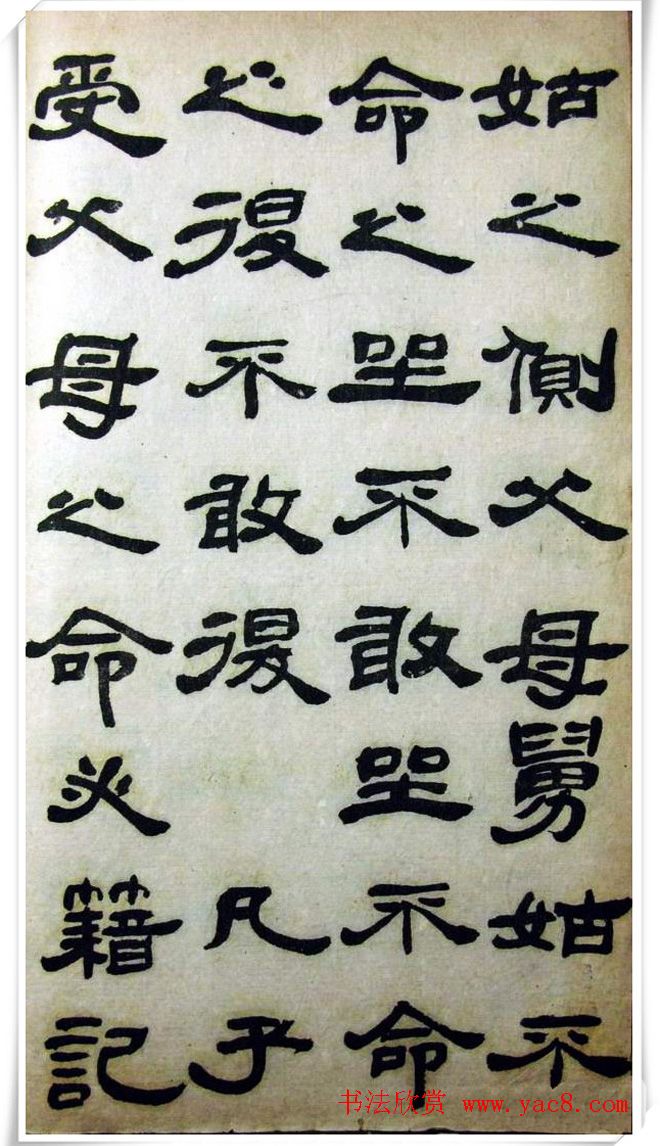 姑之側父母舅姑不
命之坐不敢坐不命
之復不敢復 凡子
受父母之命必籍記
书法欣赏 www.yac8.com